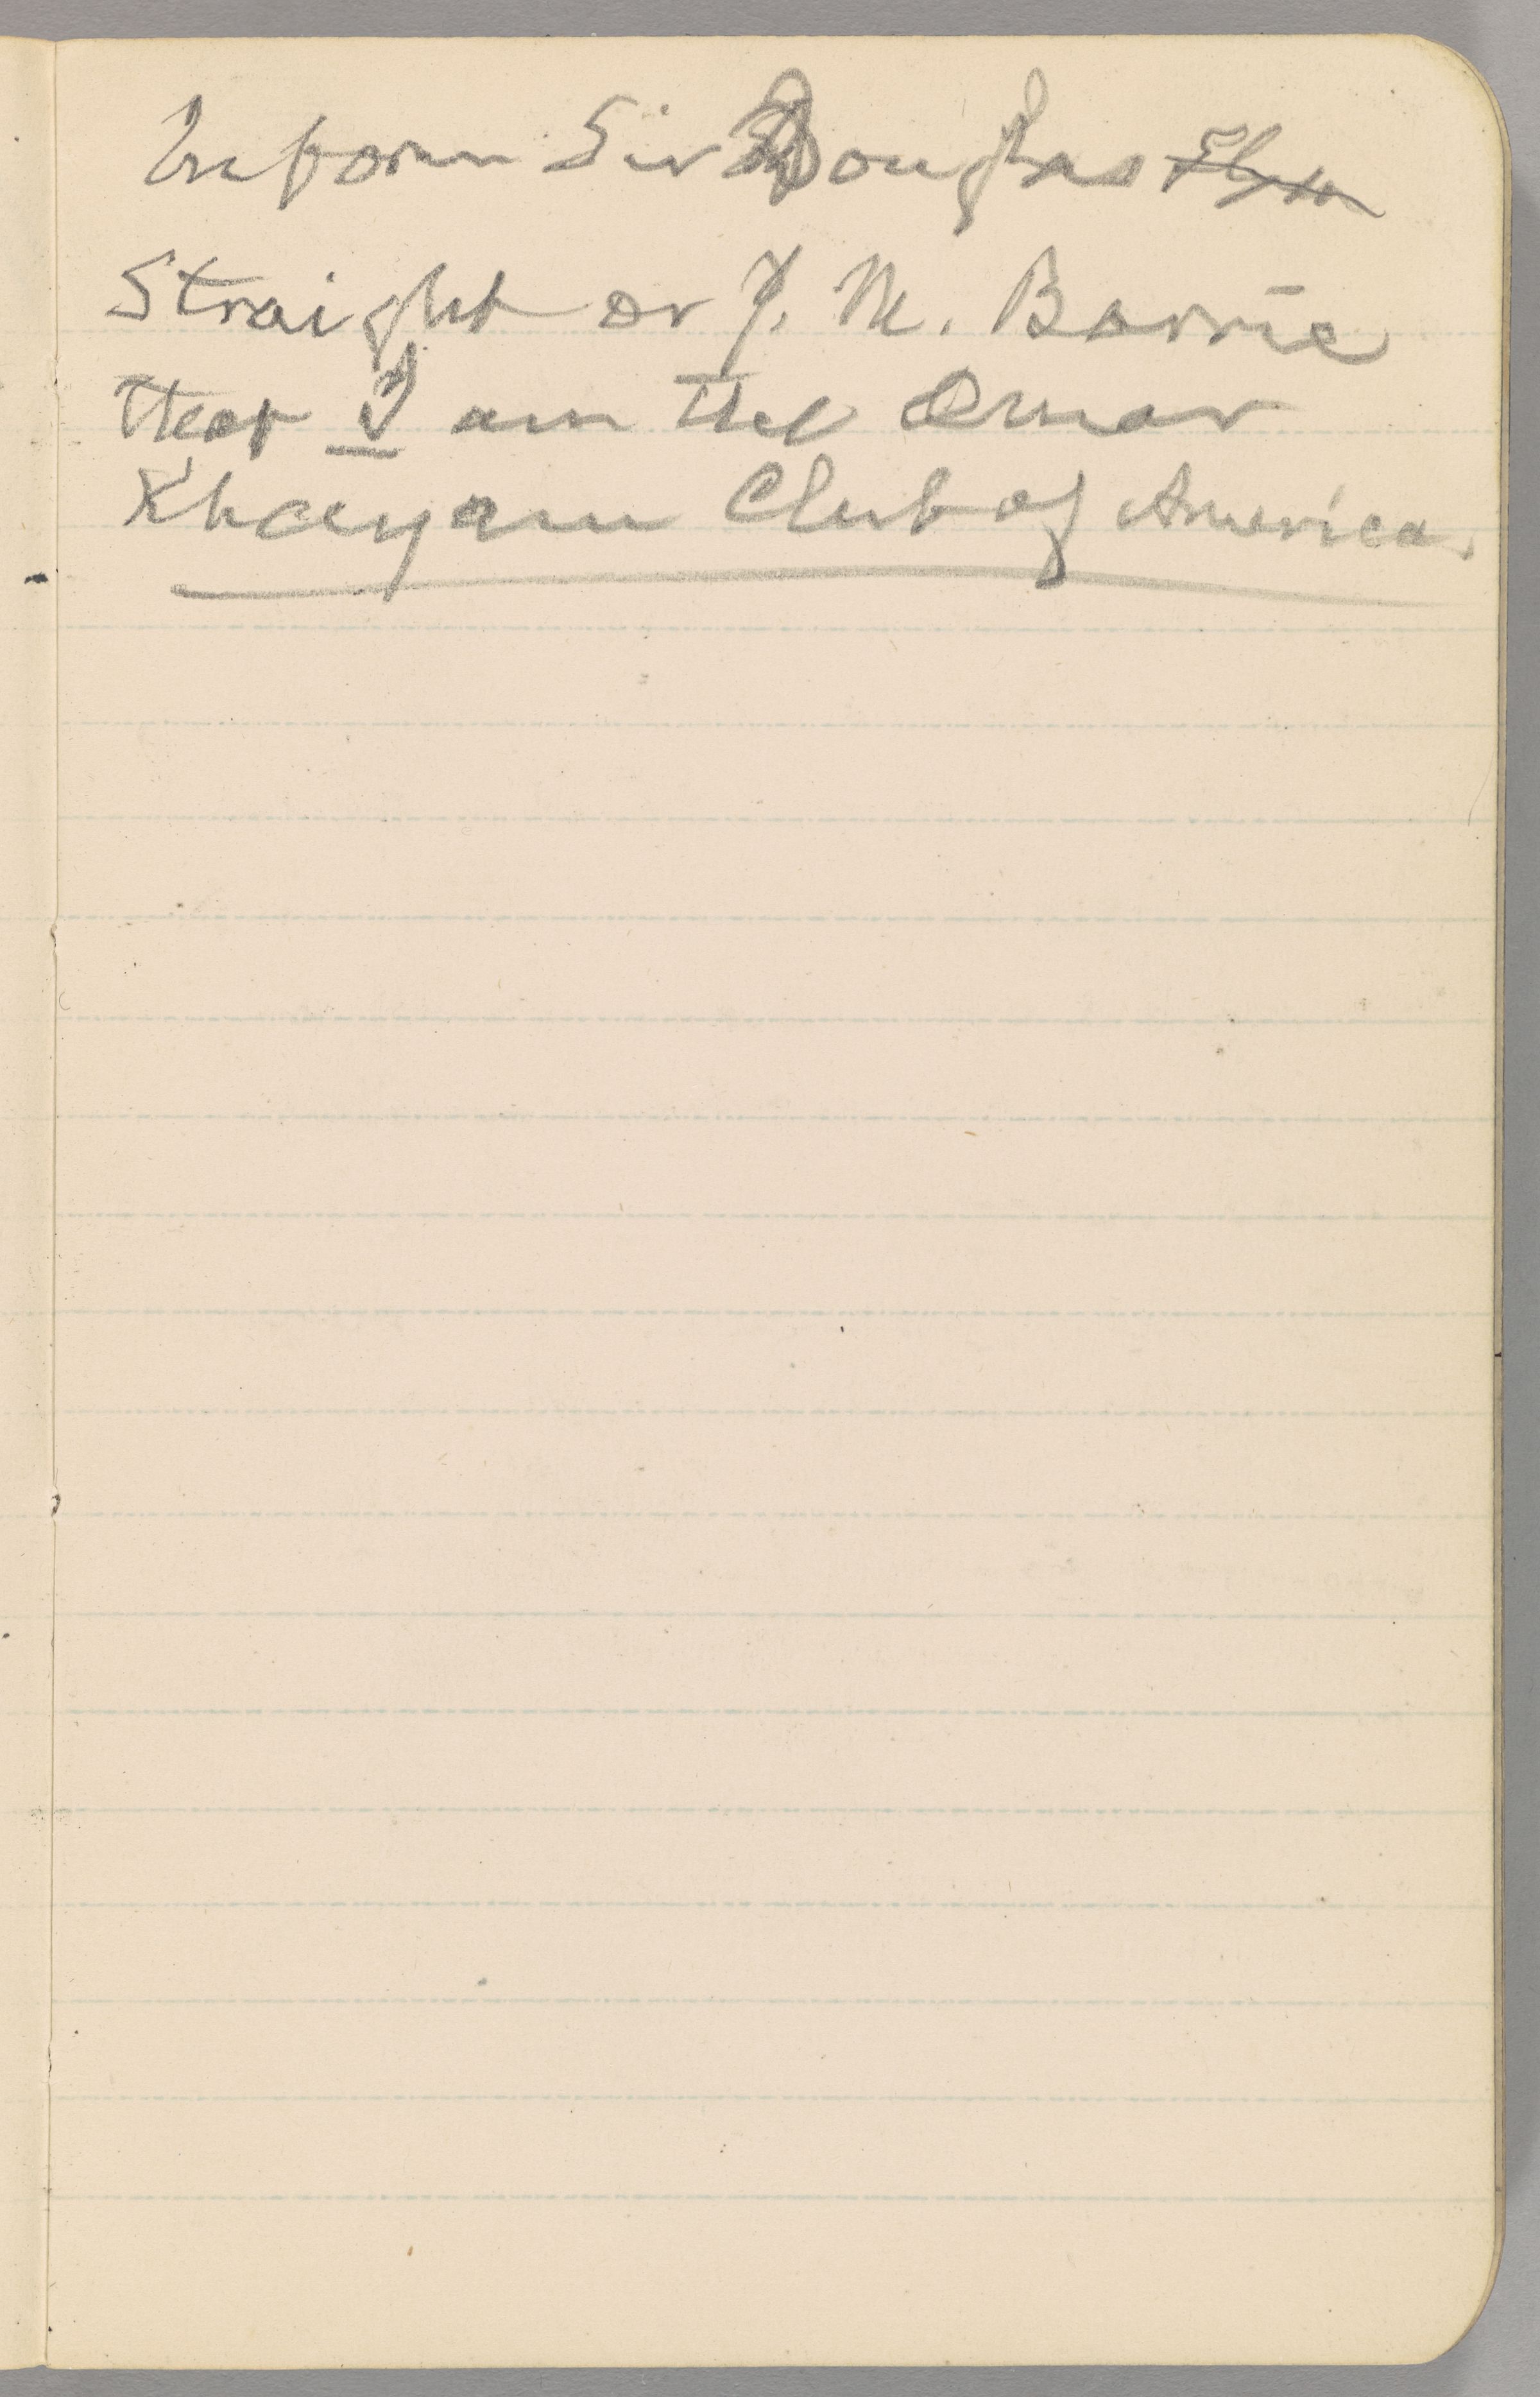 Inform Sir Douglas
Straight or J. M. Barrie
that I am the Omar
Khayam Club of America.